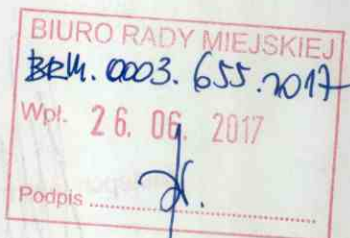 BIURO RADY MIEJSKIEJ
BRM. 0003. 655. 2017
Wpł. 26. 06. 2017
Podpis ..............